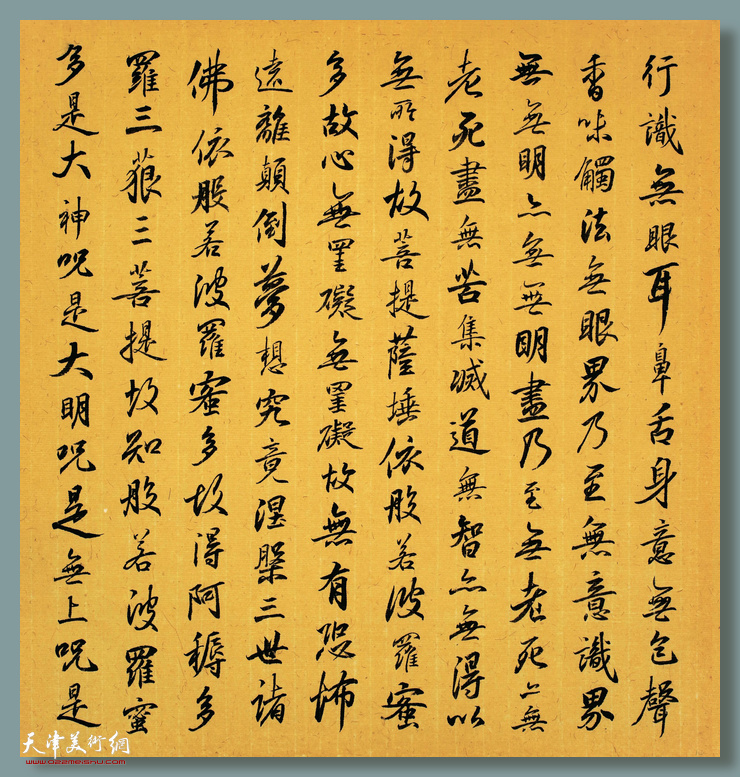 行識無眼耳鼻舌身意無色聲
香味觸法無眼界乃至無意識界
無無明亦無無明盡乃至無老死亦無
老死盡無苦集滅道無智亦無得以
無所得故菩提薩埵依般若波羅蜜
多故心無罣礙無罣礙故無有恐怖
遠離顛倒夢想究竟涅槃三世諸
佛依般若波羅蜜多故得阿耨多
羅三藐三菩提故知般若波羅蜜
多是大神呪是大明呪是無上呪是
天津美術網
www.022meishu.com